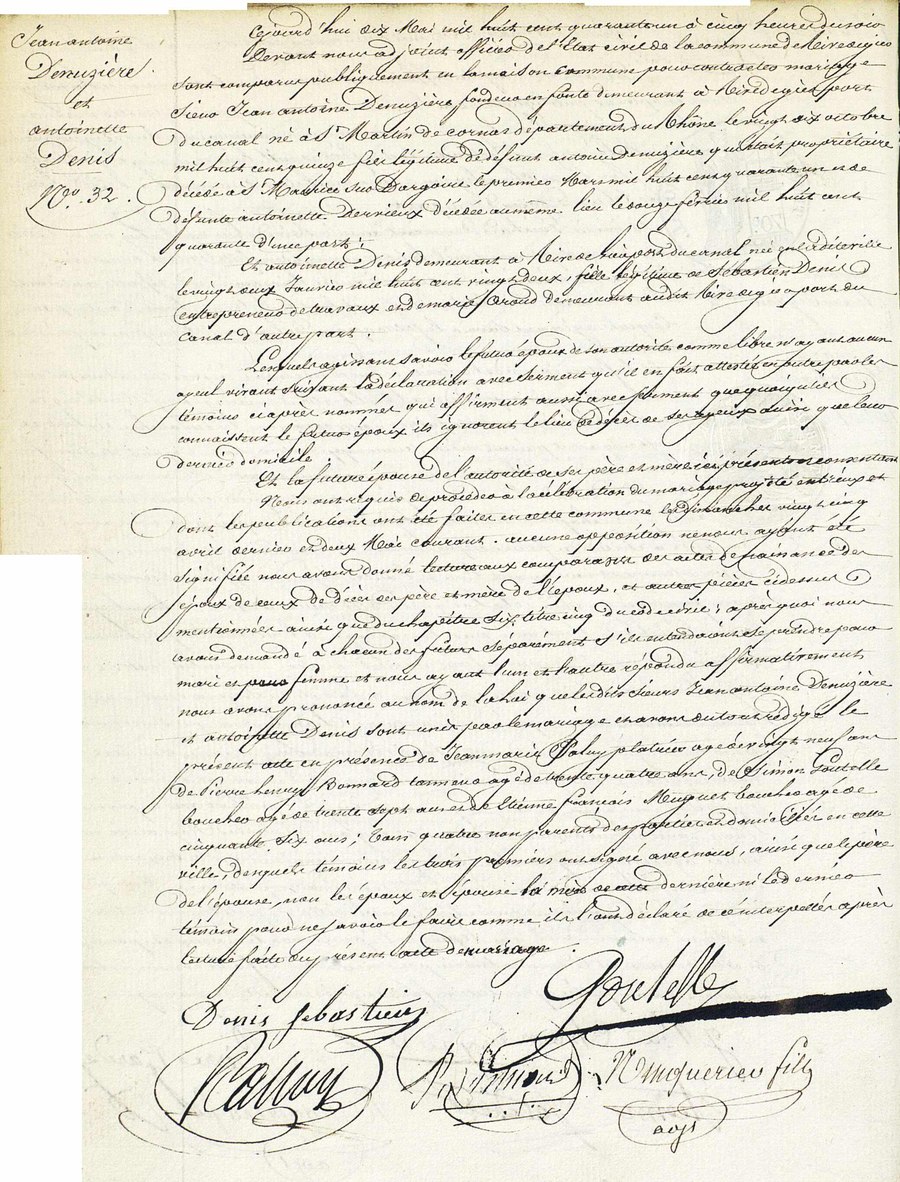 Jean antoine
Denuzière
et
antoinette
Denis
No. 32.
Cejourd'hui dix Mai mil huit cent quarante un à cinq heures du soir
Devant nous adjoint officier de l'Etat civil de la commune de Rivedegier
sont comparus publiquement en la maison Commune pour contracter mariage
Sieur Jean antoine Denuzière fondeur en fonte demeurant à Rivedegier port
du canal né à St Martin de cornas département du Rhône le vingt six octobre
mil huit cent quinze fils légitime de défunt antoine Denuzière quiétait propriétaire
décédé à St Maurice sur Dargoire le premier Mars mil huit cent quarante un et de
défunte antoinette Dervieux décédée au même lieu le fevrier mil huit cent
quarante d'une part;
Et antoinette Denis demeurant à Rivedegier port du canal née en laditeville
le vingt deux Janvier mil huit cent vingt deux, fille légitime de Sébastien Denis
entrepreneur de travaux et de marie demeurant audit Rivedegier port du
canal d'autre part.
Lesquels agissant savoir le futur époux de son autorité comme libre n'ayant aucun
ayeul vivant suivant la déclaration avec serment qu'il en fait attestée en outre par les
témoins ci après nommés qui affirment aussi avec serment que quoiqu'ils
connaissent le futur époux ils ignorent le lieu de décès de ses ayeux ainsi que leur
dernier domicile.
Et la future épouse de l'autorité de ses père et mère ici présents et consentant
Nous ont requis de procéder à la célébration du mariage projeté entr'eux et
dont les publications ont été faites en cette commune les Dimanches vingt cinq
avril dernier et deux Mai courant. aucune opposition ne nous ayant été
signifiée nous avons donné lecture aux comparants des actes de naissance des
époux de ceux de décès des père et mère de l'époux, et autres pièces cidessus
mentionnées ainsi que du chapitre six, titre cinq du code civil; après quoi nous
avons demandé à chacun des futurs séparément s'ils entendaient se prendre pour
mari et pour femme et nous ayant l'un et l'autre répondu affirmativement
nous avons prononcé au nom de la loi que lesdits sieurs Jean antoine Denuzière
et antoinette Denis sont unis par le mariage et avons du tout rédigé le
présent acte en présence de Jeanmarie platrier agé de vingt neuf ans
de Pierre henry Bonnard tanneur agé de trente quatre ans, de Simon Goutelle
boucher agé de trente sept ans et de Etienne François Muguet boucher agé de
cinquante six ans; tous quatre non parents des parties et domiciliés en cette
ville, desquels témoins les trois premiers ont signé avec nous, ainsi que le père
de l'épouse, non les époux et épouse la mère de cette dernière ni le dernier
témoin pour ne savoir le faire comme ils l'ont déclaré de ce interpellés après
lecture faite du présent acte de mariage.
Denis sebastien
Goutelle
fils
adjt